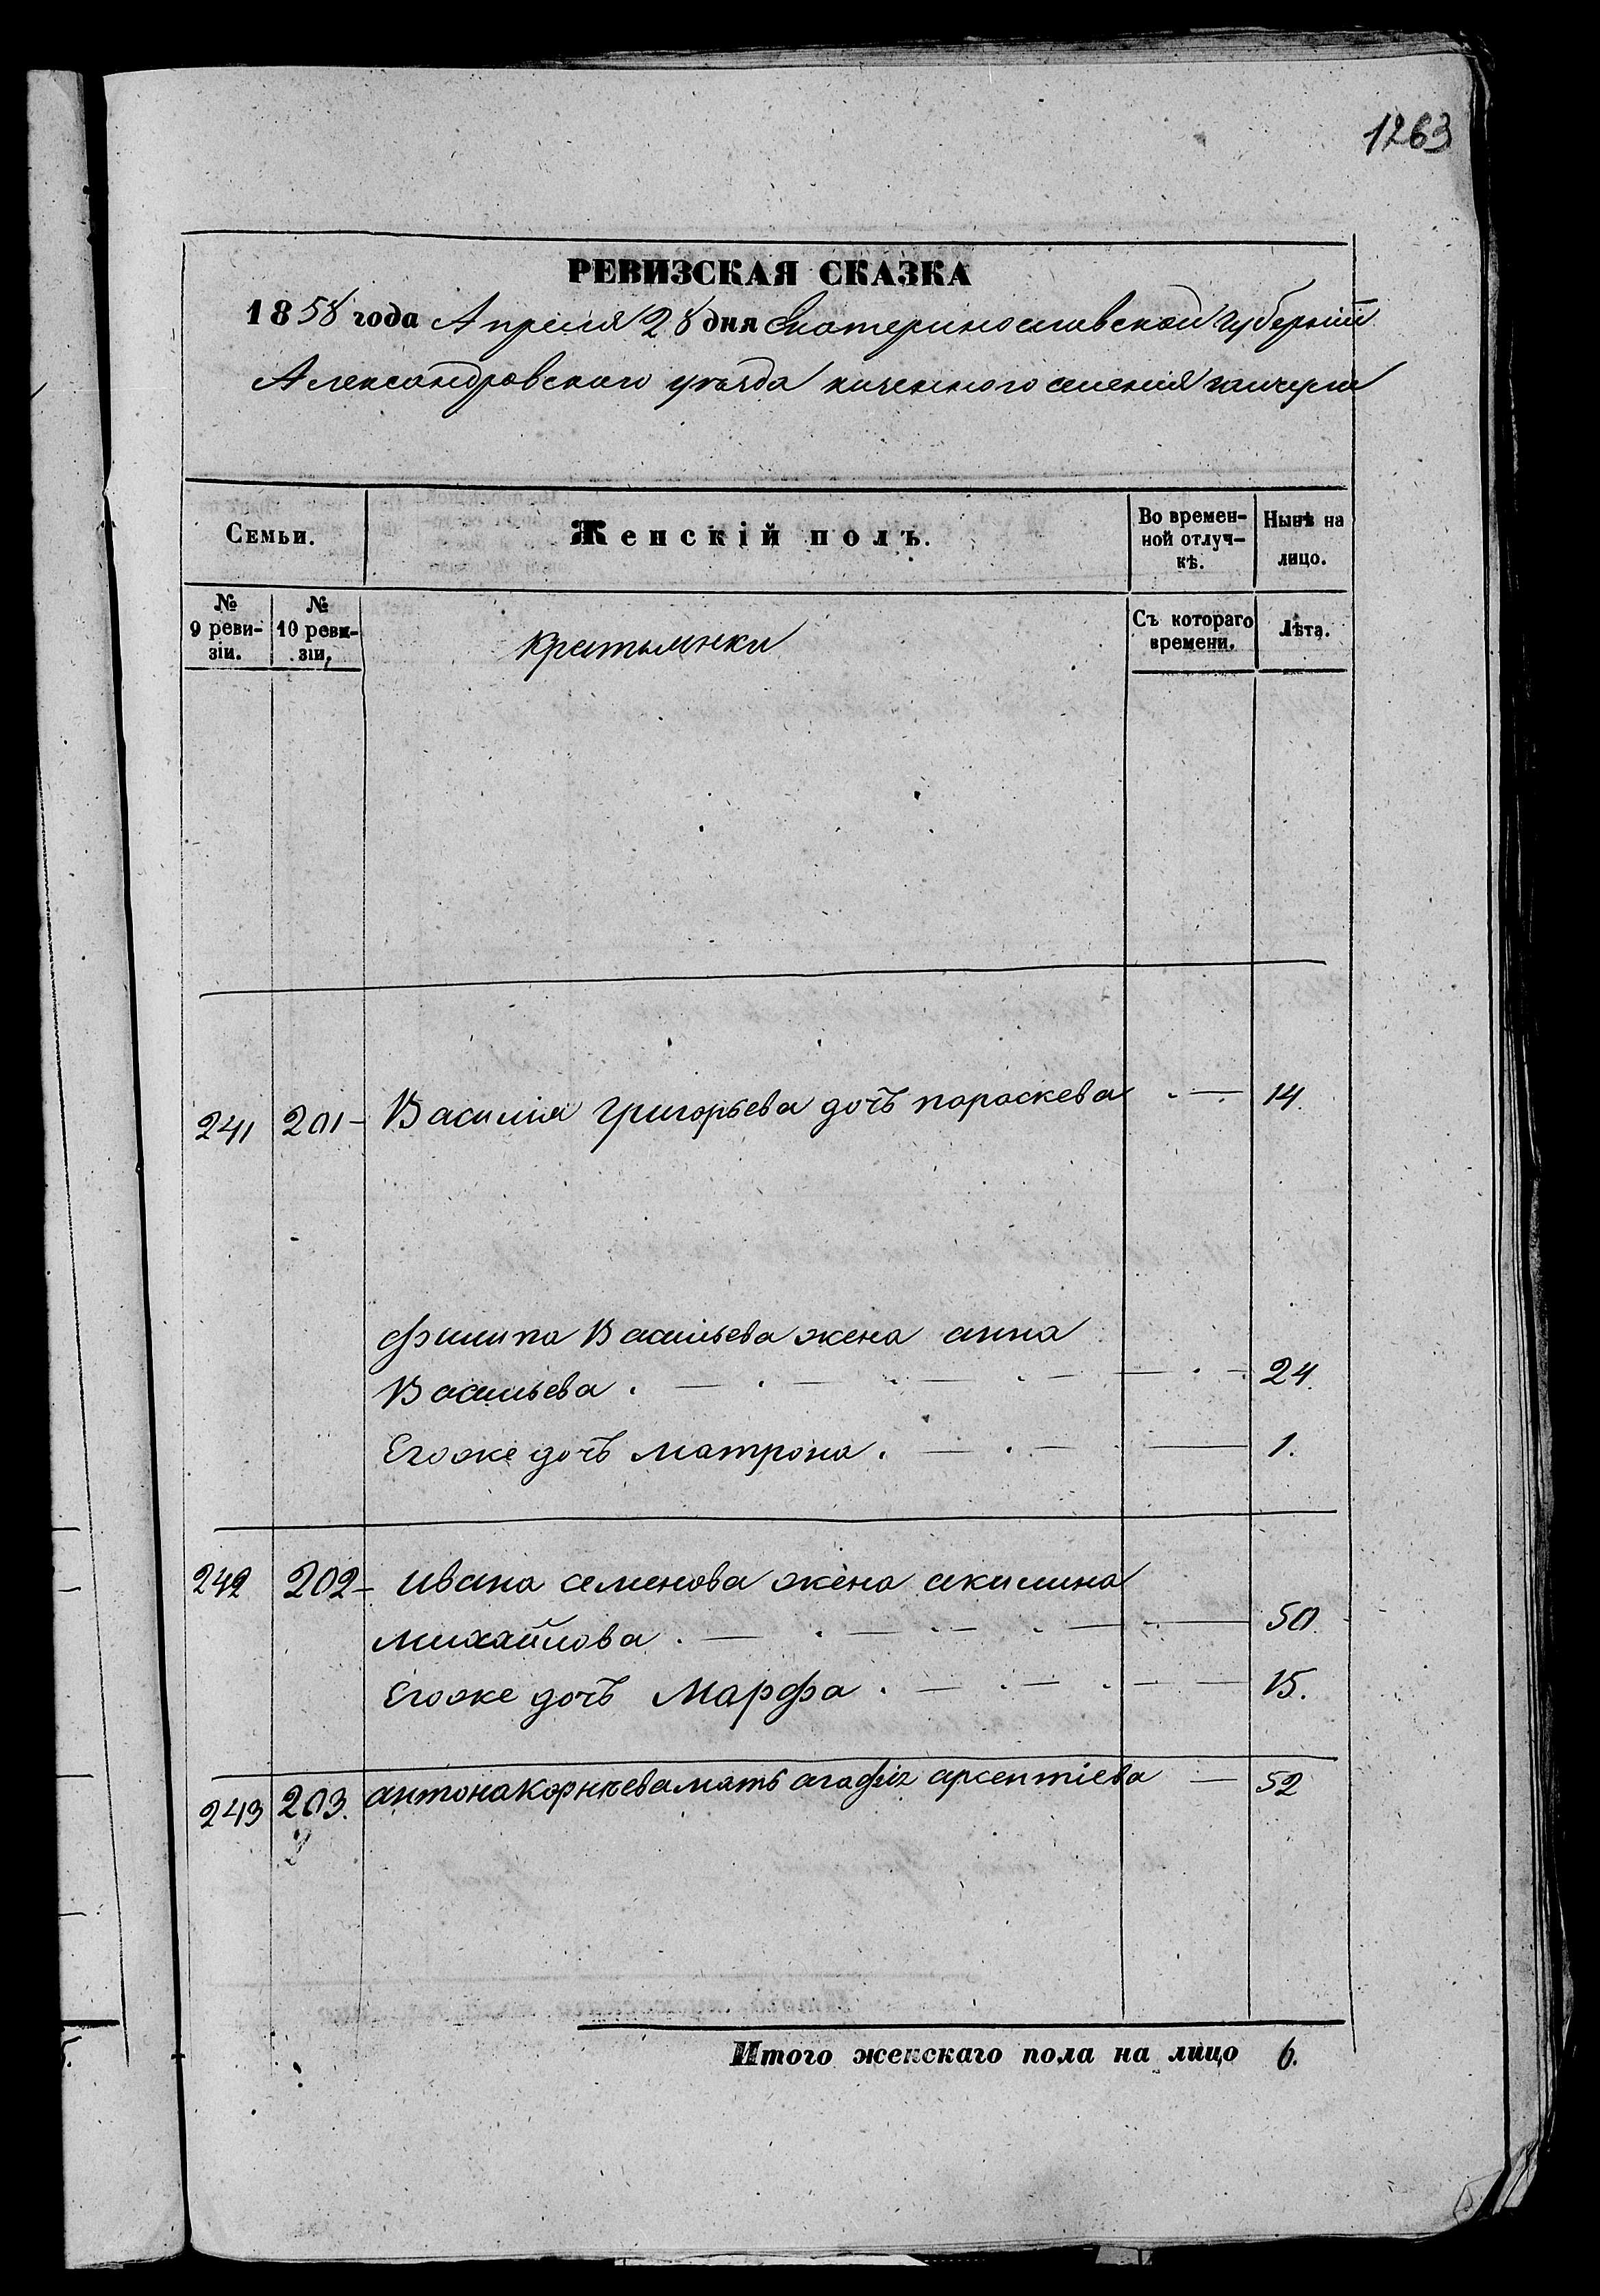 1263
РЕВИЗСКАЯ СКАЗКА
1858 года Апреля 28 дня Екатеринославской губерніи
Александровского уезда казенного селенія
Семьи.
Женскій полъ.
Во времен-
ной отлуч-
кѣ.
Нынѣ на
лицо.
№
9 реви-
зіи.
№
10 реви-
зіи.
крестьянки
Съ котораго
времени.
Лѣта.
241 201- Василія григорьева дочь пораскева 14.
филипа Васильева жена анна
Васильева. 24.
Его же дочь матрона. 1.
242 202- ивана семенова жена акилина
михайлова. 50
Его же дочь Марфа. 15.
243 203. антона корнѣева мать агафія арсентіева 52
Итого женскаго пола на лицо 6.